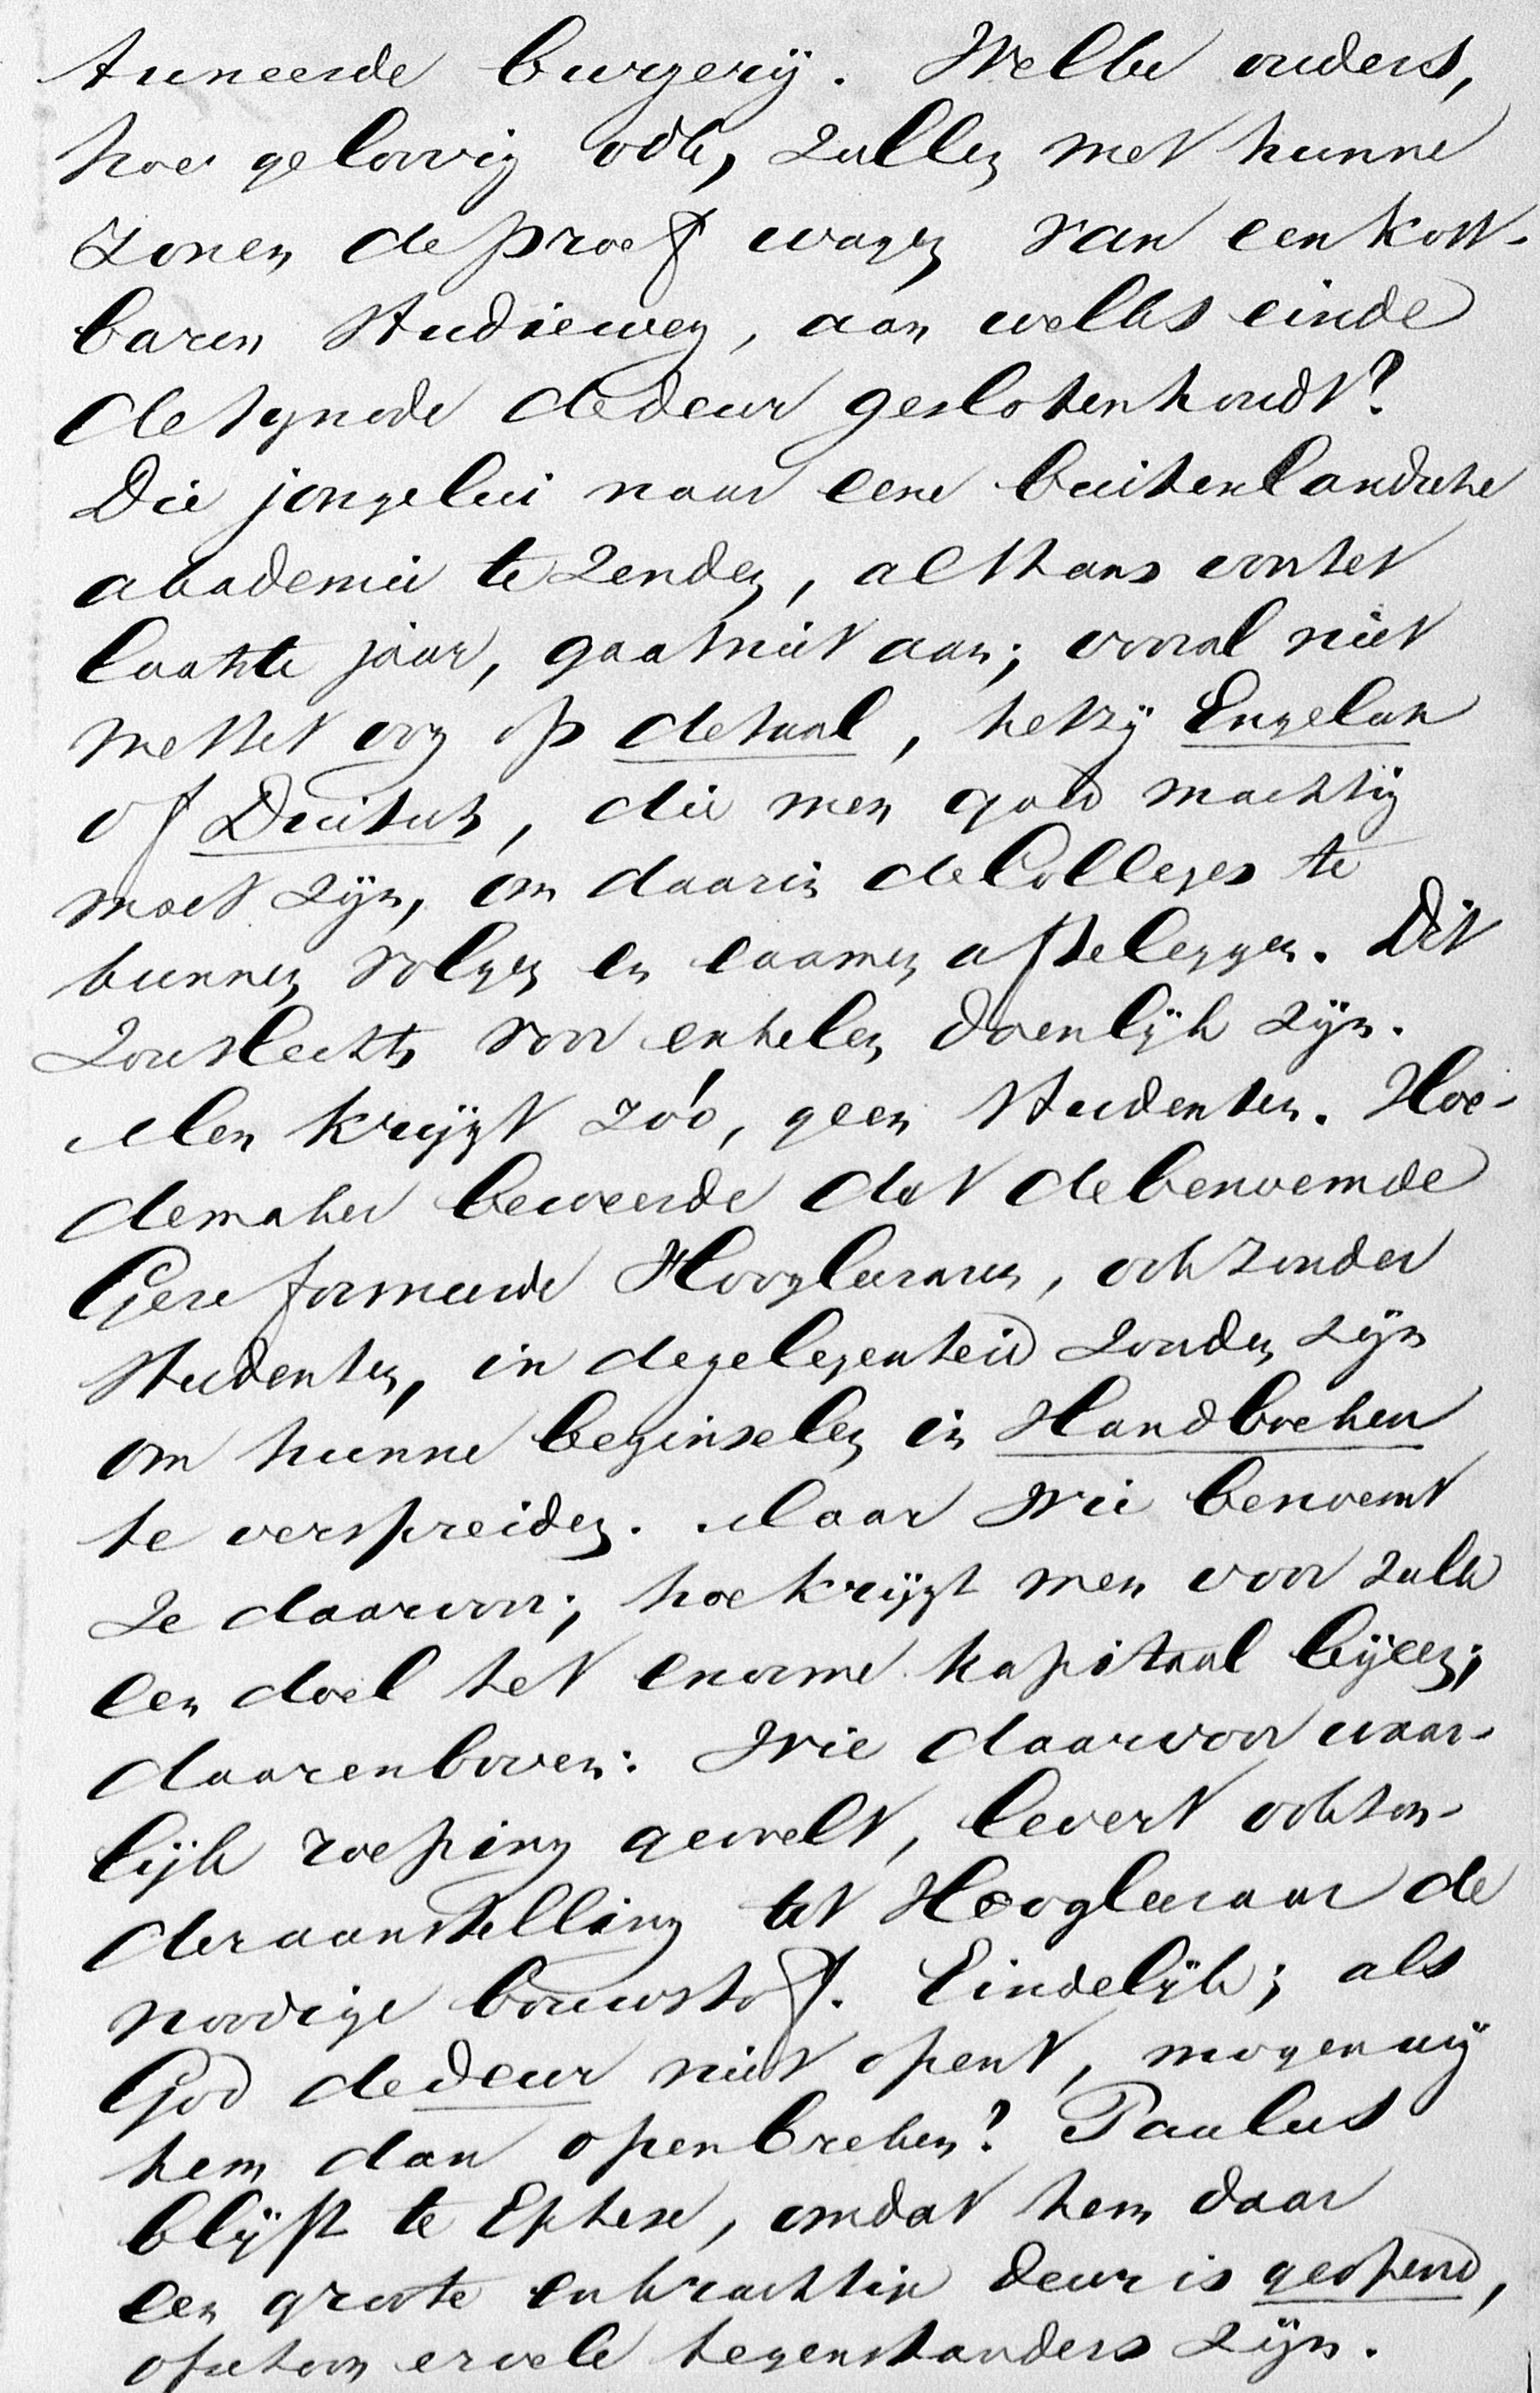 tuneerde burgerij. Welke ouders,
hoe geloovig ook, zullen met hunne
zonen de proef wagen van een kost-
baren studieweg, aan welks einde
de synode de deur gesloten houdt?
Die jongelui naar eene buitenlandsche
akademie te zenden, althans voor het
laatste jaar, gaat niet aan; vooral niet
met het oog op de taal, hetzij Engelsch
of Duitsch, die men goed machtig
moet zijn, om daarin de Colleges te
kunnen volgen en examen af te leggen. Dit
zou slechts voor enkelen doenlijk zijn.
Men krijgt zóó, geen studenten. Hoe-
demaker beweerde dat de benoemde
Gereformeerde Hoogleeraren, ook zonder
studenten, in de gelegenheid zouden zijn
om hunne beginselen in Handboeken
te verspreiden. Maar Wie benoemt
ze daarvoor; hoe krijgt men voor zulk
een doel het enorme kapitaal bijeen;
daarenboven: Wie daarvoor waar-
lijk roeping gevoelt, levert ook zon-
der aanstelling tot Hoogleeraar de
noodige bouwstof. Eindelijk; als
God de deur niet opent, mogen wij
hem dan openbreken? Paulus
blijft te Ephese, omdat hem daar
een groote en krachtige deur is geopend,
ofschoon er vele tegenstanders zijn.